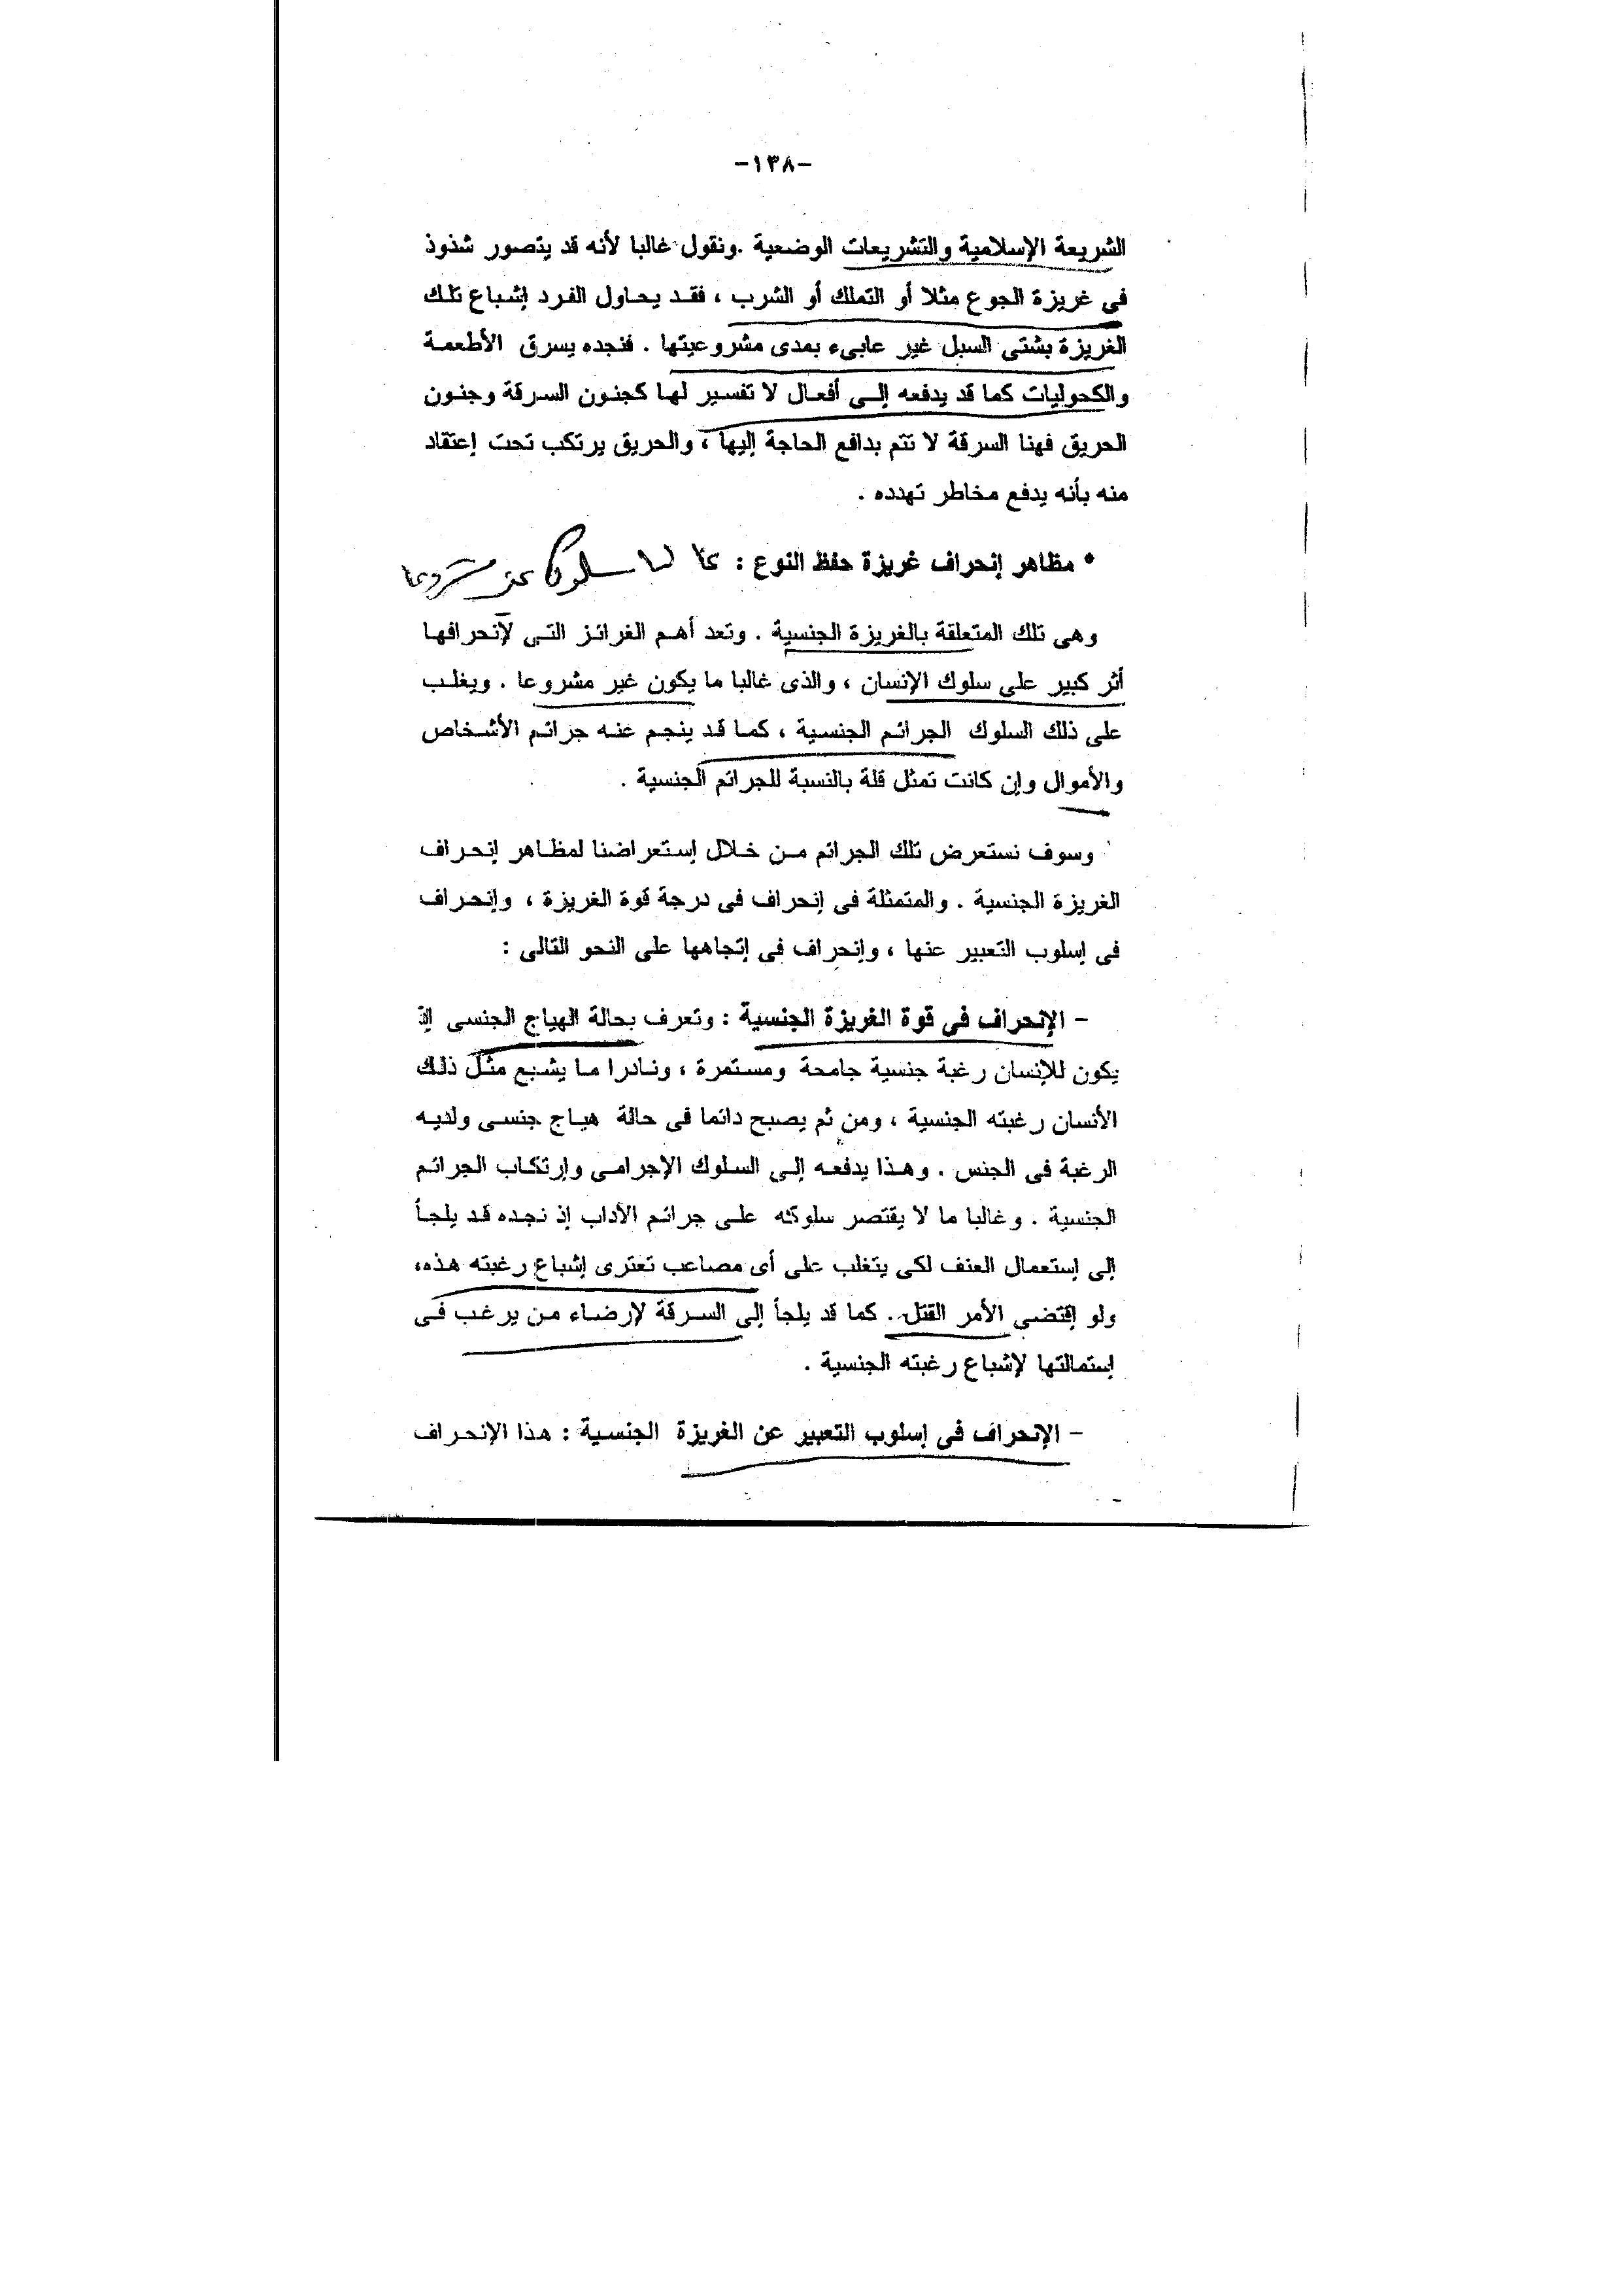 -١٣٨-
الشريعة الإسلامية والتشريعات الوضعية .ونقول غالبا لأنه قد يتصور شذوذ
فى غريزة الجوع مثلا أو التملك أو الشرب ، فقد يحاول الفرد إشباع تلك
الغريزة بشتى السبل غير عابىء بمدى مشروعيتها . فنجده يسرق الأطعمة
والكحوليات كما قد يدفعه إلى أفعال لا تفسير لها كجنون السرقة وجنون
الحريق فهنا السرقة لا تتم بدافع الحاجة إليها ، والحريق يرتكب تحت إعتقاد
منه بأنه يدفع مخاطر تهدده .
* مظاهر إنحراف غريزة حفظ النوع :
وهى تلك المتعلقة بالغريزة الجنسية . وتعد أهم الغرائز التى لإنحرافها
أثر كبير على سلوك الإنسان ، والذى غالبا ما يكون غير مشروعا . ويغلب
على ذلك السلوك الجرائم الجنسية ، كما قد ينجم عنه جرائم الأشخاص
والأموال وإن كانت تمثل قلة بالنسبة للجرائم الجنسية .
وسوف نستعرض تلك الجرائم من خلال إستعراضنا لمظاهر إنحراف
الغريزة الجنسية . والمتمثلة فى إنحراف فى درجة قوة الغريزة ، وإنحراف
فى إسلوب التعبير عنها ، وإنحراف فى إتجاهها على النحو التالى :
- الإنحراف فى قوة الغريزة الجنسية : وتعرف بحالة الهياج الجنسى إذ
يكون للإنسان رغبة جنسية جامحة ومستمرة ، ونادرا ما يشبع مثل ذلك
الأنسان رغبته الجنسية ، ومن ثم يصبح دائما فى حالة هياج جنسى ولديه
الرغبة فى الجنس . وهذا يدفعه إلى السلوك الإجرامى وإرتكاب الجرائم
الجنسية . وغالبا ما لا يقتصر سلوكه على جرائم الآداب إذ نجده قد يلجأ
إلى إستعمال العنف لكى يتغلب على أى مصاعب تعترى إشباع رغبته هذه،
ولو إقتضى الأمر القتل . كما قد يلجأ إلى السرقة لإرضاء من يرغب فى
إستمالتها لإشباع رغبته الجنسية .
- الإنحراف فى إسلوب التعبير عن الغريزة الجنسية : هذا الإنحراف